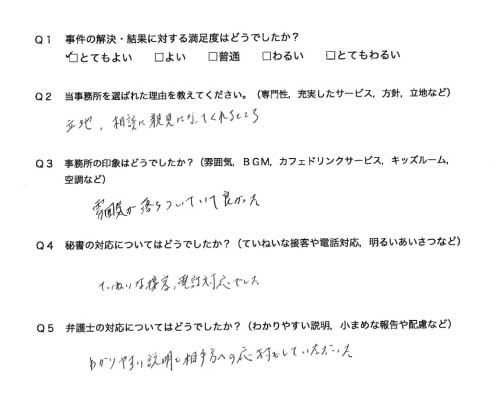 Q1 事件の解決・結果に対する満足度はどうでしたか？
✓□とてもよい □よい □普通 □わるい □とてもわるい
Q2 当事務所を選ばれた理由を教えてください。（専門性，充実したサービス，方針，立地など）
立地，相談に親見になってくれるところ
Q3 事務所の印象はどうでしたか？（雰囲気，BGM，カフェドリンクサービス，キッズルーム，
空調など）
雰囲気が落ちついていて良かった
Q4 秘書の対応についてはどうでしたか？（ていねいな接客や電話対応，明るいあいさつなど）
ていねいな接客，電話対応でした
Q5 弁護士の対応についてはどうでしたか？（わかりやすい説明，小まめな報告や配慮など）
わかりやすい説明と相手方への応対をしていただいた